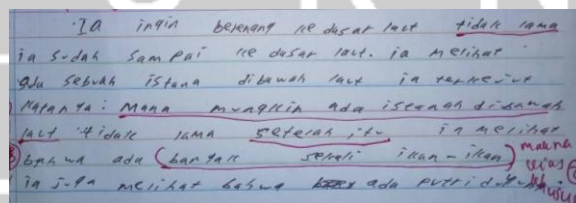 Ia ingin berenang ke dasar laut tidak lama
ia sudah sampai ke dasar laut. ia melihat
ada sebuah istana dibawah laut ia terkejut
Katanya: Mana mungkin ada istanah dibawah
laut tidak lama setelah itu ia melihat
bahwa ada (banyak sekali ikan-ikan) makna
ia juga melihat bahwa ada putri duyung.
khusus